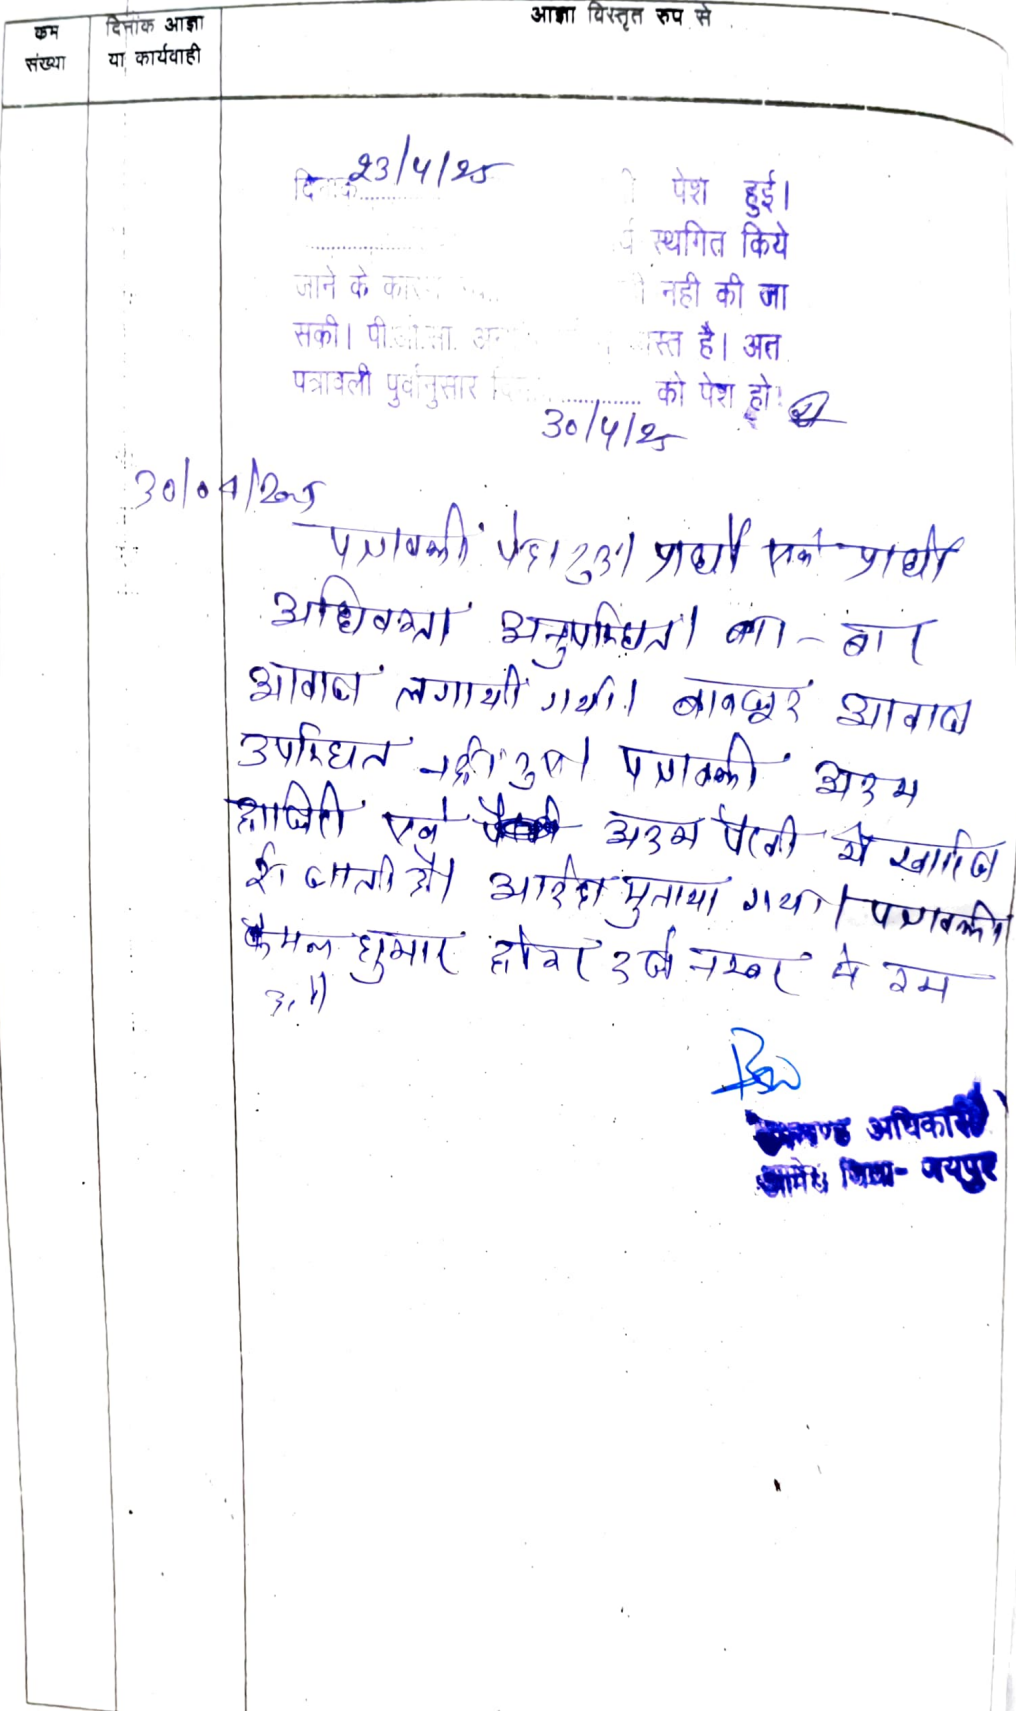 क्रम संख्या
दिनांक आज्ञा या कार्यवाही
आज्ञा विस्तृत रुप से
दिनांक 23/4/25 पेश हुई।
स्थगित किये
जाने के नही की जा
सकी। है। अत
पत्रावली पुर्वानुसार को पेश हो।
30/4/25
30/04/2025
पत्रावली पेश हुई। प्रार्थी एवं प्रार्थी
अधिवक्ता अनुपस्थित। बार-बार
आवाज लगायी गयी। बावजूद आवाज
उपस्थित नहीं हुए। पत्रावली अदम
हाजिरी एवं अदम पैरवी में खारिज
की जाती है। आदेश सुनाया गया। पत्रावली
फैसल शुमार होकर दर्ज नम्बर से कम
हो।
उपखण्ड अधिकारी
आमेर जिला- जयपुर